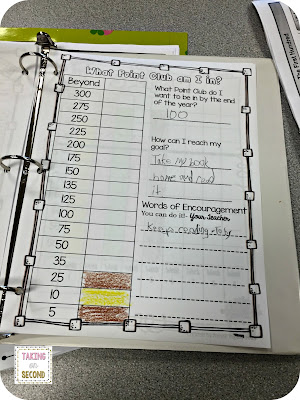 What Point Club am I in?
Beyond
300
275
250
225
200
175
150
135
125
100
75
50
35
25
10
5
What Point Club do I
want to be in by the end
of the year?
100
How can I reach my
goal?
Take my book
home and read
it
Words of Encouragement
You can do it! - Your Teacher
Keep reading
TAKING
on
SECOND